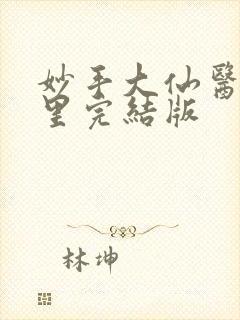 妙手大仙醫
里完結版
林坤